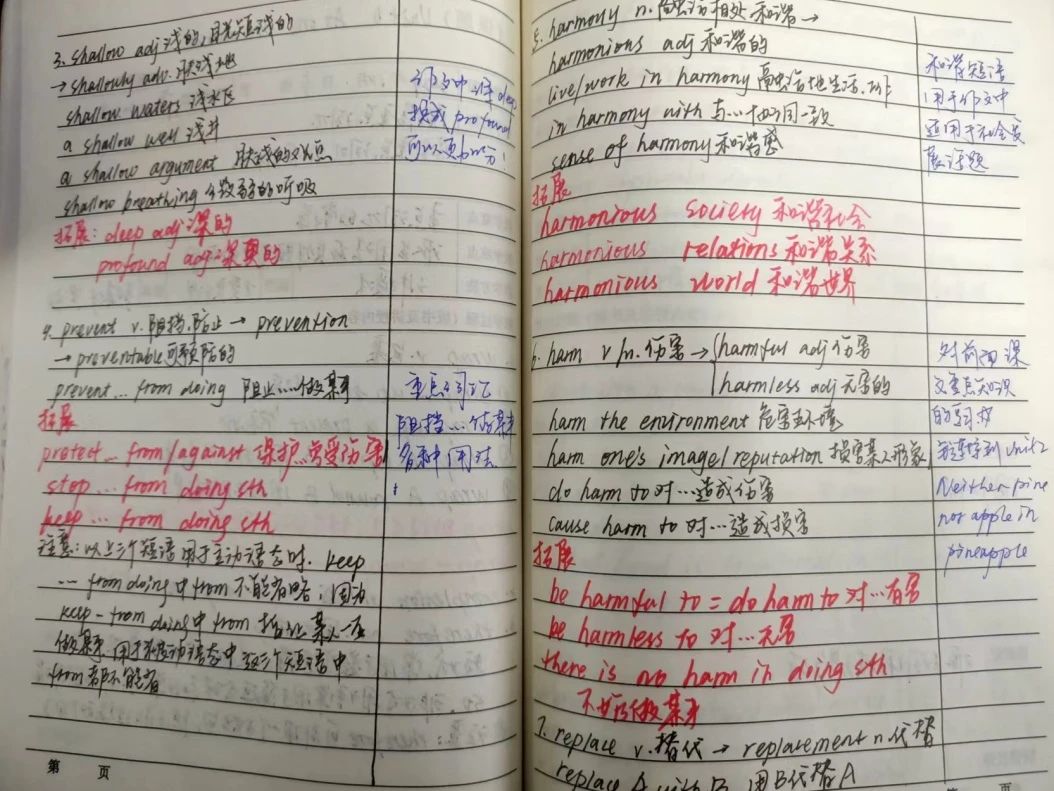 3. shallow adj 浅的,肤浅的
→ shallowly adv. 肤浅地
shallow waters 浅水区
a shallow well 浅井
a shallow argument 肤浅的观点
shallow breathing 的呼吸
拓展: deep adj 深的
profound adj 深奥的
作文中将deep
换成 profound
可以更加分!
4. prevent v. 阻挡,防止 → prevention
→ preventable 可预防的
prevent... from doing 阻止…做某事
拓展
protect ... from/against 保护..免受伤害
stop ... from doing sth
keep ... from doing sth
注意: 以上三个短语用于主动语态时. keep
... from doing 中 from 不能省略; 因为
keep - from doing 中 from 某人一在
做某事. 用于被动语态中这三个短语中
from都不能省
重点词汇
阻挡…做某事
多种用法
第 页
5. harmony n. 融洽相处 和谐 →
harmonious adj 和谐的
live/work in harmony 融洽地生活.工作
in harmony with 与…协同一致
sense of harmony 和谐感
拓展
harmonious society 和谐社会
harmonious relations 和谐关系
harmonious world 和谐世界
和谐短语
用于作文中
适用于社会发
展话题
6. harm v/n. 伤害 → harmful adj 伤害
harmless adj 无害的
harm the environment 危害环境
harm one's image/reputation 损害某人形象
do harm to 对…造成伤害
cause harm to 对…造成损害
拓展
be harmful to = do harm to 对…有害
be harmless to 对…无害
there is no harm in doing sth
不妨做某事
对前面课
文重点知识
的
unit2
Neither pine
nor apple in
pineapple
7. replace v. 替代 → replacement n 代替
replace A with B 用B代替A
页